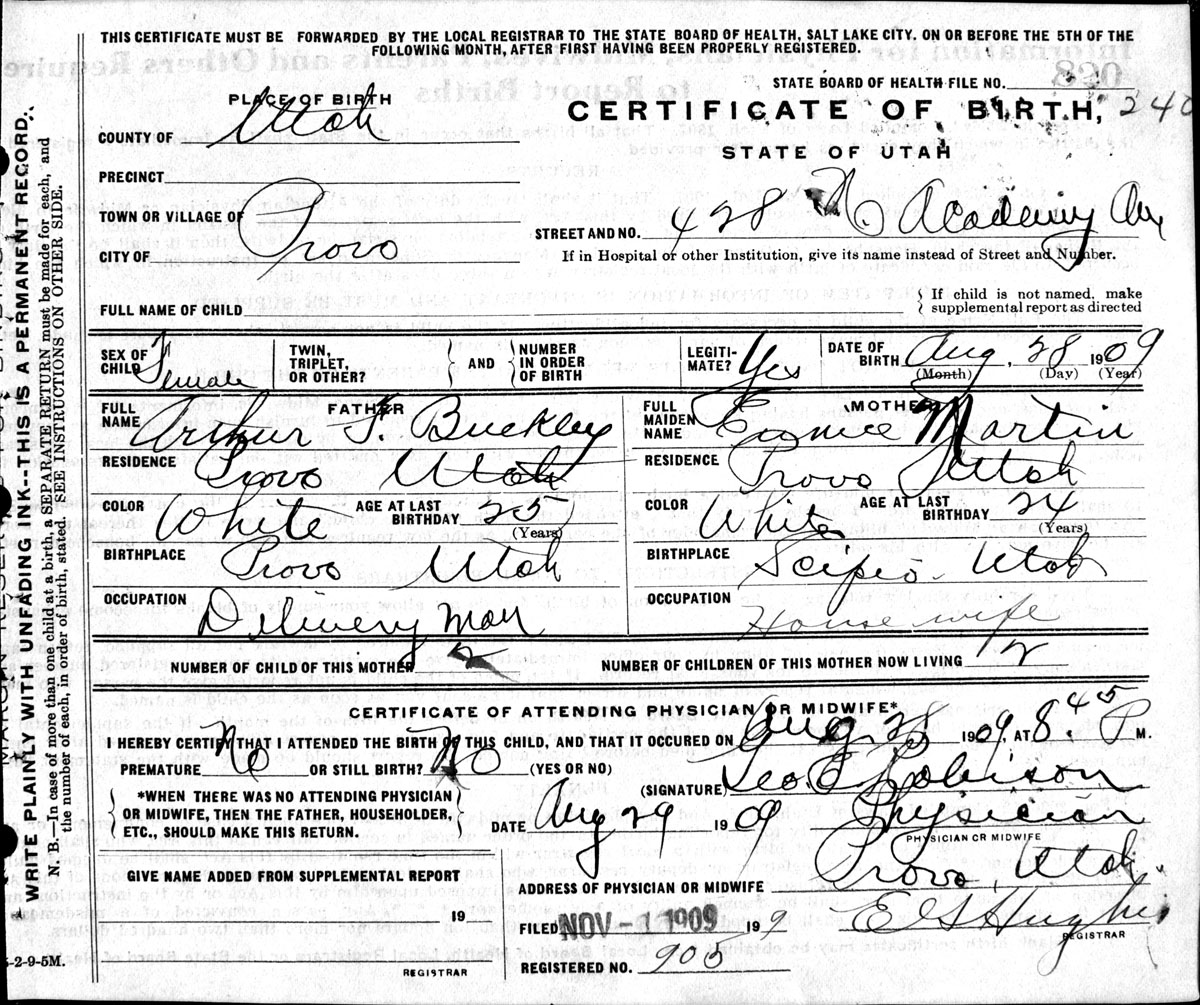 THIS CERTIFICATE MUST BE FORWARDED BY THE LOCAL REGISTRAR TO THE STATE BOARD OF HEALTH, SALT LAKE CITY, ON OR BEFORE THE 5TH OF THE
FOLLOWING MONTH, AFTER FIRST HAVING BEEN PROPERLY REGISTERED.
STATE BOARD OF HEALTH FILE NO.
PLACE OF BIRTH
CERTIFICATE OF BIRTH, 240
COUNTY OF Utah
STATE OF UTAH
PRECINCT
TOWN OR VILLAGE OF
STREET AND NO. 428 N. Academy Av
CITY OF Provo
If in Hospital or other Institution, give its name instead of Street and Number.
FULL NAME OF CHILD
If child is not named, make
supplemental report as directed
SEX OF CHILD Female
TWIN, TRIPLET, OR OTHER?
AND
NUMBER IN ORDER OF BIRTH
LEGITI-MATE? Yes
DATE OF BIRTH Aug. 28 1909
(Month) (Day) (Year)
FATHER
FULL NAME Arthur F. Buckley
RESIDENCE Provo Utah
COLOR White AGE AT LAST BIRTHDAY 25
(Years)
BIRTHPLACE Provo Utah
OCCUPATION Delivery man
MOTHER
FULL MAIDEN NAME Eunice Martin
RESIDENCE Provo Utah
COLOR White AGE AT LAST BIRTHDAY 24
(Years)
BIRTHPLACE Scipio Utah
OCCUPATION House wife
NUMBER OF CHILD OF THIS MOTHER 2
NUMBER OF CHILDREN OF THIS MOTHER NOW LIVING 2
CERTIFICATE OF ATTENDING PHYSICIAN OR MIDWIFE*
I HEREBY CERTIFY THAT I ATTENDED THE BIRTH OF THIS CHILD, AND THAT IT OCCURED ON Aug 28 1909, AT 8.45 P M.
PREMATURE No OR STILL BIRTH? No (YES OR NO)
(SIGNATURE) Geo E Robison
*WHEN THERE WAS NO ATTENDING PHYSICIAN
OR MIDWIFE, THEN THE FATHER, HOUSEHOLDER,
ETC., SHOULD MAKE THIS RETURN.
DATE Aug 29 1909 Physician
PHYSICIAN OR MIDWIFE
GIVE NAME ADDED FROM SUPPLEMENTAL REPORT
ADDRESS OF PHYSICIAN OR MIDWIFE Provo, Utah
19
FILED NOV -1 1909 199 E G Hughes
REGISTRAR
REGISTERED NO. 905
REGISTRAR
-2-9-5M.
WRITE PLAINLY WITH UNFADING INK--THIS IS A PERMANENT RECORD.
N. B.—In case of more than one child at a birth, a SEPARATE RETURN must be made for each, and
the number of each, in order of birth, stated. SEE INSTRUCTIONS ON OTHER SIDE.